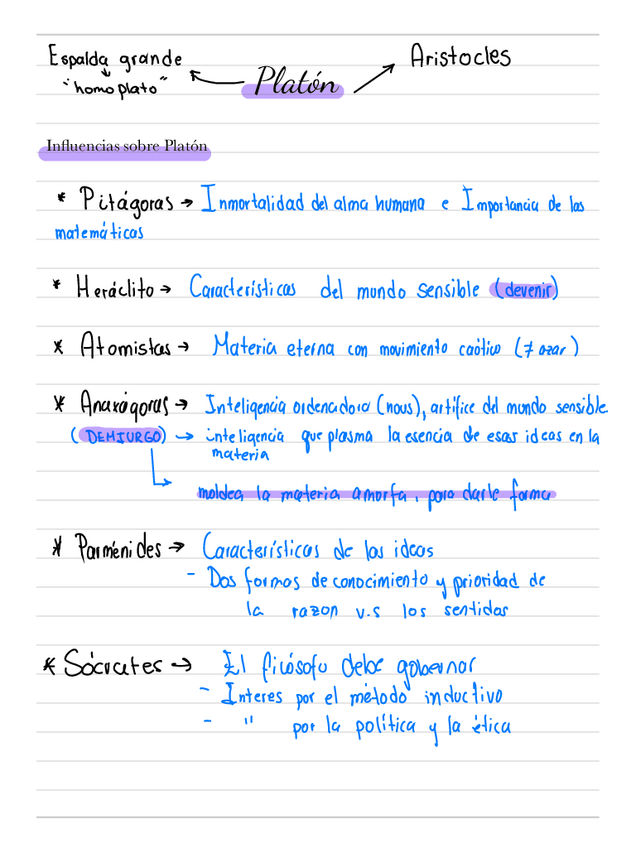 Espalda grande
"homoplato"
Platón
Aristocles
Influencias sobre Platón
* Pitágoras → Inmortalidad del alma humana e Importancia de las
matemáticas
* Heráclito → Características del mundo sensible (devenir)
* Atomistas → Materia eterna con movimiento caótico (≠ azar)
* Anaxágoras → Inteligencia ordenadora (nous), artífice del mundo sensible
(DEMIURGO) → inteligencia que plasma la esencia de esas ideas en la
materia
moldea la materia amorfa, para darle forma
* Parménides → Características de las ideas
- Dos formas de conocimiento y prioridad de
la razon v.s los sentidos
* Sócrates → El filósofo debe gobernar
- Interes por el método inductivo
- " por la política y la ética